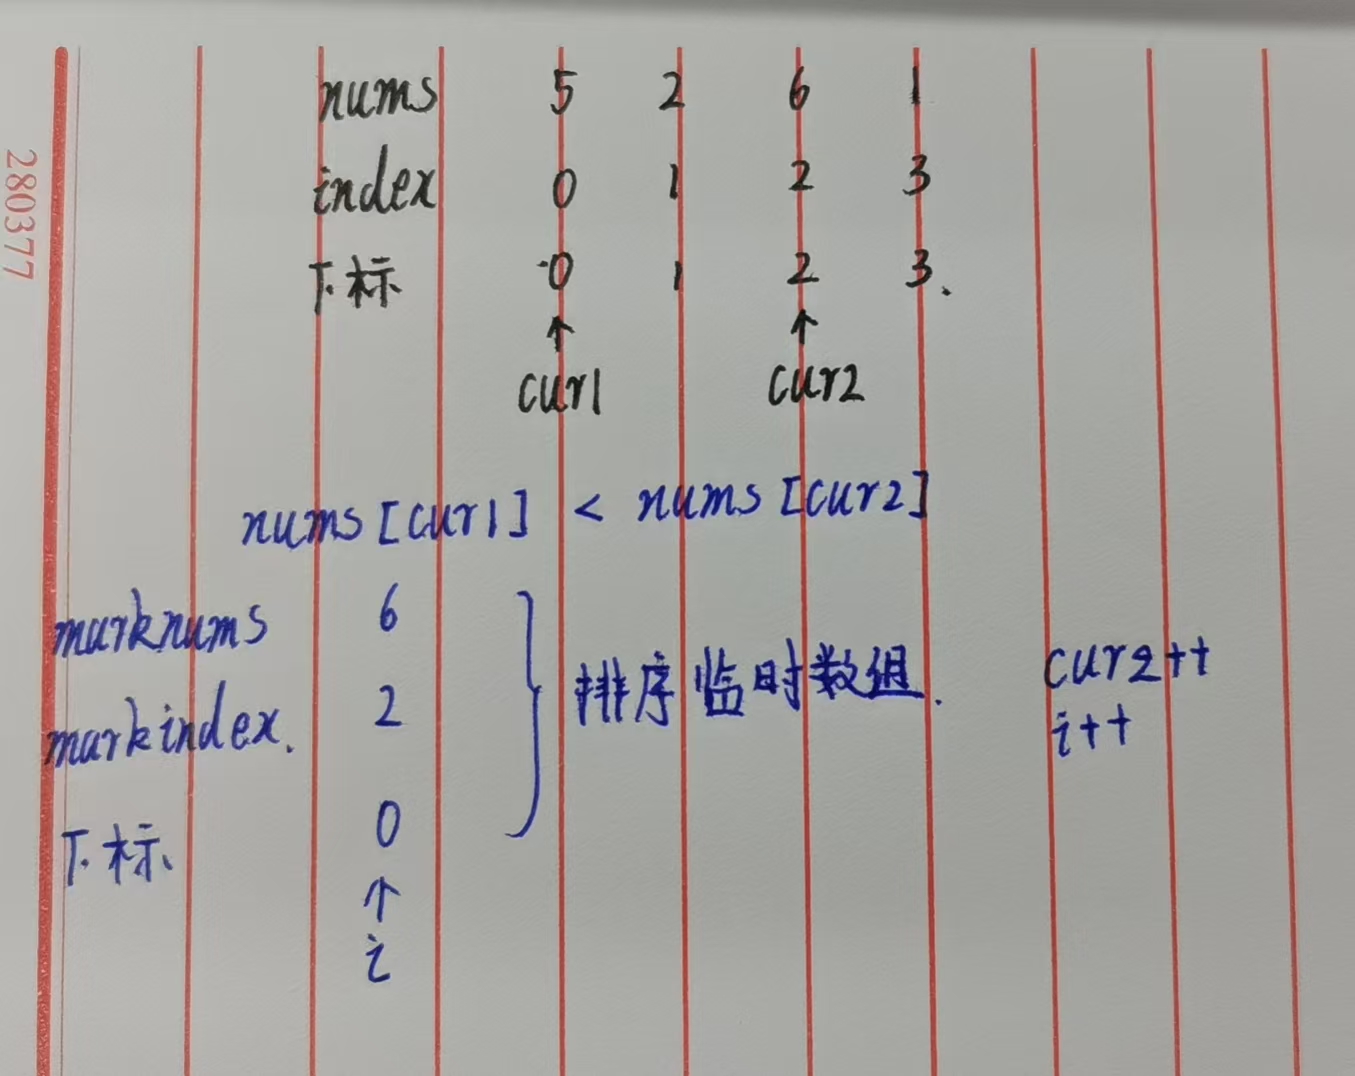 280377
nums 5 2 6 1
index 0 1 2 3
下标 0 1 2 3.
↑ ↑
cur1 cur2
nums[cur1] < nums[cur2]
marknums 6
markindex. 2
排序临时数组.
cur2++
i++
下标. 0
↑
i